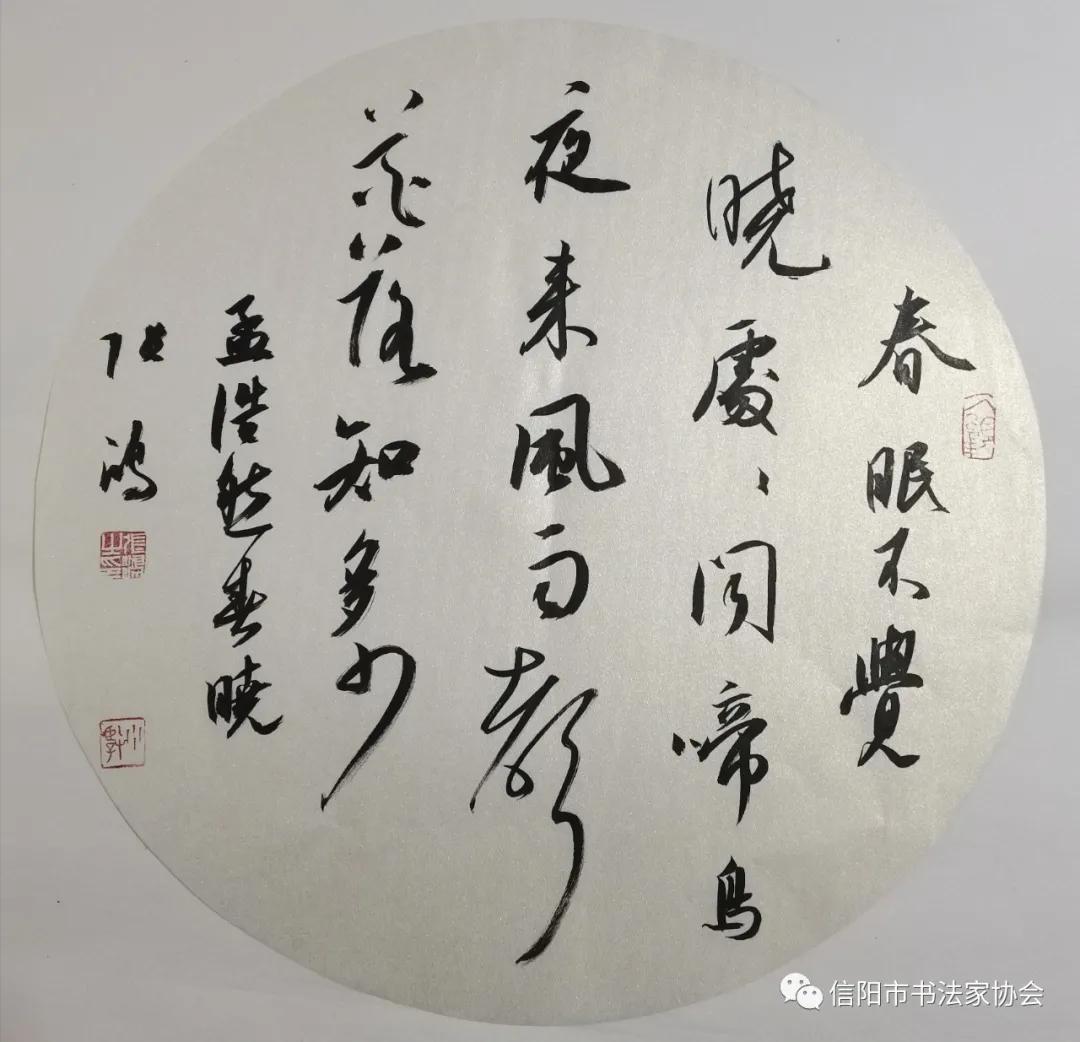 春眠不覺
曉處、聞啼鳥
夜来風雨聲
花落知多少
孟浩然春曉
張鴻
張鴻之印
信阳市书法家协会